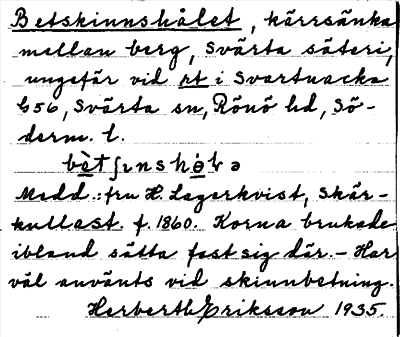 Betskinnshålet, kärrsänka
mellan berg, Svärta säteri,
ungefär vid rt i Svartnacka
G56, Svärta sn, Rönö hd, Sö-
derm. l.
Medd.: fru H. Lagerkvist, Skär-
kullast. f. 1860. Korna brukade
ibland sätta fast sig där. – Har
väl använts vid skinnbetning.
Herberth Eriksson 1935.